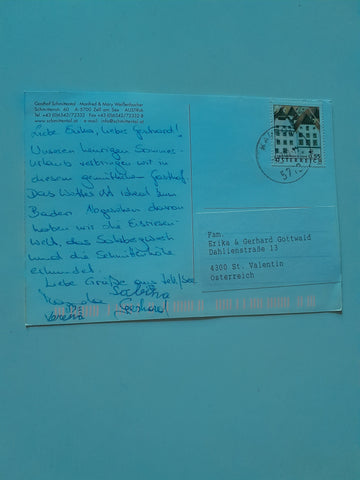 Gasthof Schmittental Manfred & Mary Weißenbacher
Schmittenstr. 60 A-5700 Zell am See AUSTRIA
Tel. +43 (0)6542/72332 Fax +43 (0)6542/72332
www.schmittental.at e-mail: info@schmittental.at
Liebe Erika, liebe Gerhard!
Unseren heurigen Sommer-
Urlaub verbringen wir in
diesem gemütlichen Gasthof
Das Wetter ist ideal zum
Baden. Abgesehen davon
haben wir die Eisriesen-
welt, das Salzbergwerk
und die Schmittenhöhe
erkundet.
Liebe Grüße aus Zell/See
Sabina
Gerhard
Verena
ÖSTERREICH
57
Fam.
Erika & Gerhard Gottwald
Dahlienstraße 13
4300 St. Valentin
Österreich